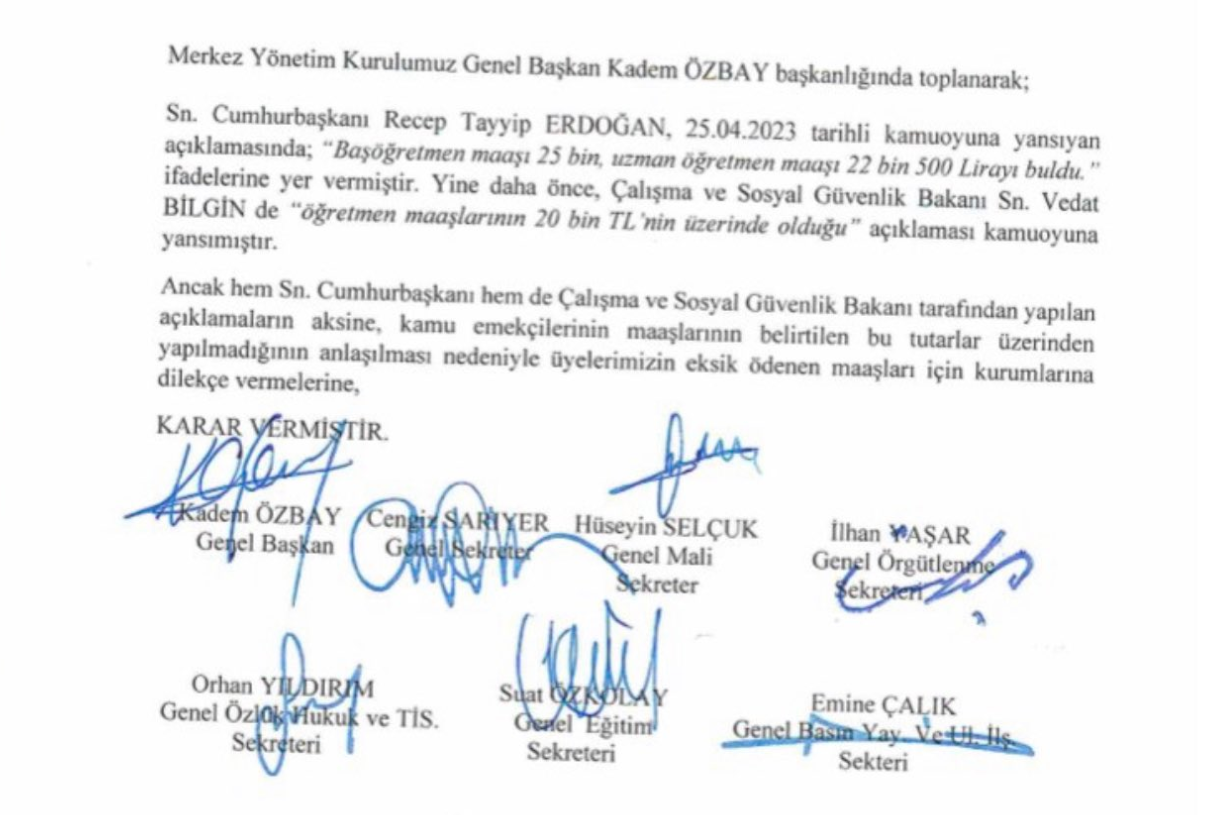 Merkez Yönetim Kurulumuz Genel Başkan Kadem ÖZBAY başkanlığında toplanarak;
Sn. Cumhurbaşkanı Recep Tayyip ERDOĞAN, 25.04.2023 tarihli kamuoyuna yansıyan
açıklamasında; “Başöğretmen maaşı 25 bin, uzman öğretmen maaşı 22 bin 500 Lirayı buldu.”
ifadelerine yer vermiştir. Yine daha önce, Çalışma ve Sosyal Güvenlik Bakanı Sn. Vedat
BİLGİN de “öğretmen maaşlarının 20 bin TL’nin üzerinde olduğu” açıklaması kamuoyuna
yansımıştır.
Ancak hem Sn. Cumhurbaşkanı hem de Çalışma ve Sosyal Güvenlik Bakanı tarafından yapılan
açıklamaların aksine, kamu emekçilerinin maaşlarının belirtilen bu tutarlar üzerinden
yapılmadığının anlaşılması nedeniyle üyelerimizin eksik ödenen maaşları için kurumlarına
dilekçe vermelerine,
KARAR VERMİŞTİR.
Kadem ÖZBAY Cengiz SARIYER Hüseyin SELÇUK İlhan YAŞAR
Genel Başkan Genel Sekreter Genel Mali Genel Örgütlenme
Sekreter Sekreteri
Orhan YILDIRIM Suat ÖZKOLAY Emine ÇALIK
Genel Özlük Hukuk ve TİS. Genel Eğitim Genel Basın Yay. Ve Ul. İlş.
Sekreteri Sekreteri Sekteri